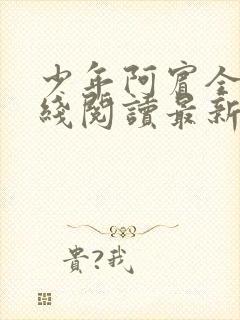 少年阿賓全
綫閱讀最新
貴?我